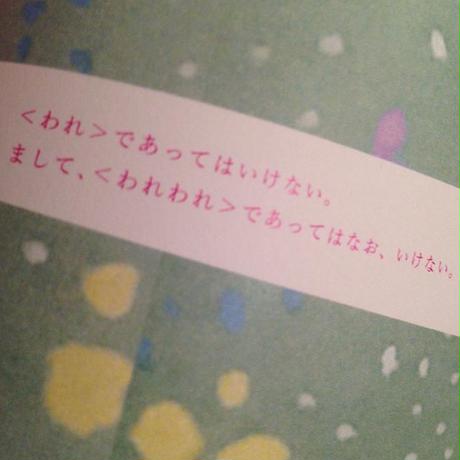 ＜われ＞であってはいけない。
まして、＜われわれ＞であってはなお、いけない。